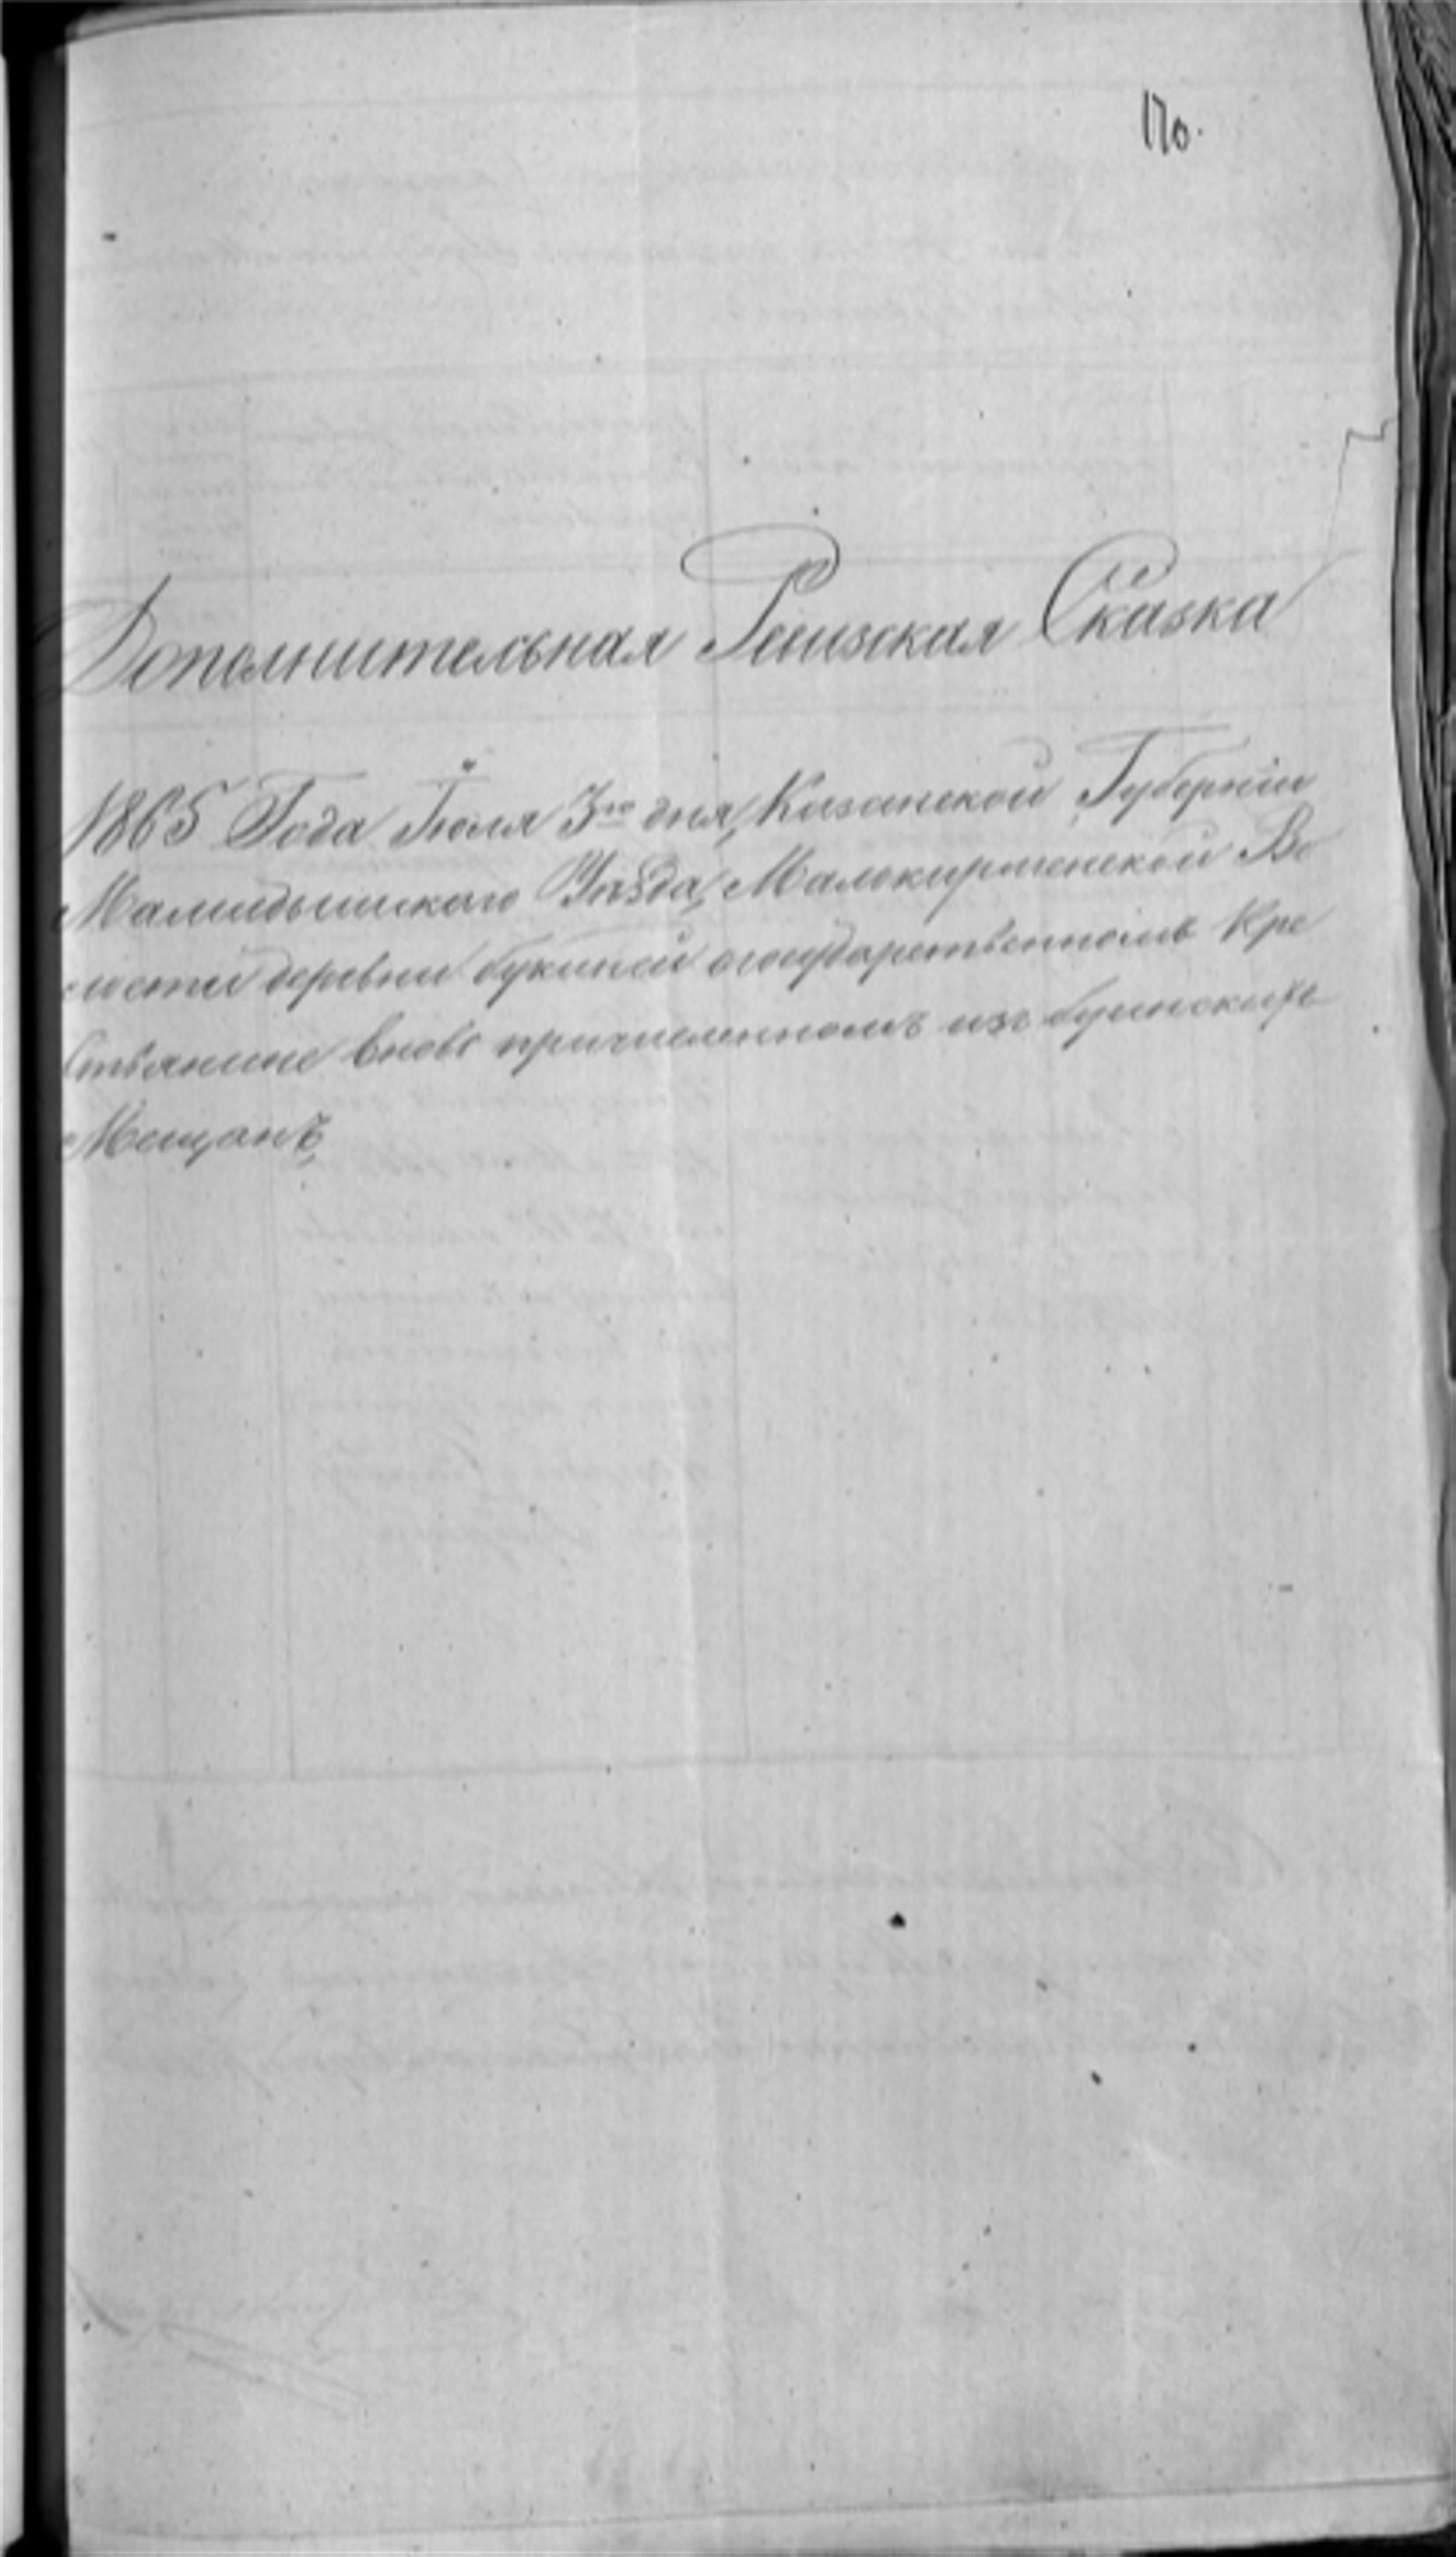 170.
Дополнительная Ревизская Сказка
1865 Года Июля 3го дня, Казанской Губерніи
Мамадышскаго Уѣзда, Малокирменской Во
лости деревни букиней огосударственномъ Кре
стьянине вновь причисленномъ изъ буинскихъ
Мещанъ